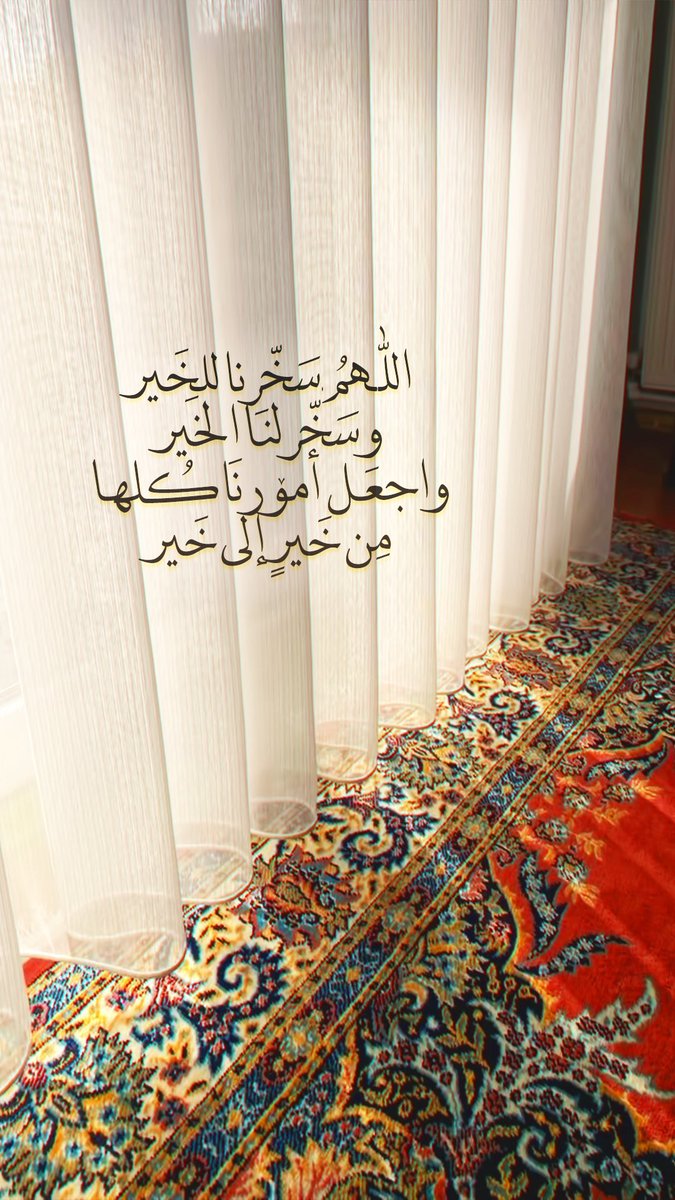 اللهمُ سَخّرنا للخَير
وسَخّرلنَا الخير
واجعَل أمورنَا كُلها
مِن خَيرٍ إلى خَير